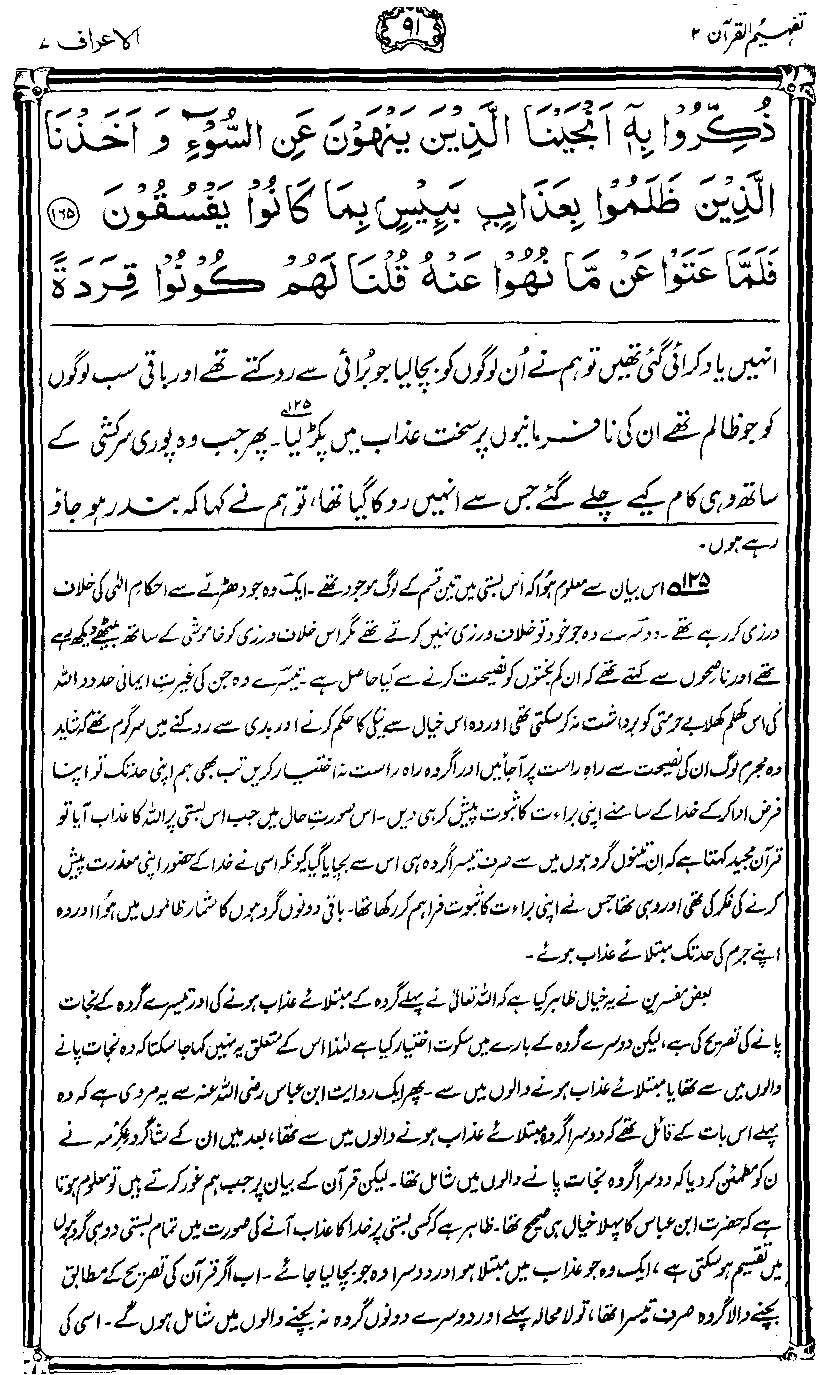 تفہیم القرآن ۲
۹۱
الاعراف ۷
ذُكِّرُوْا بِهٖۤ اَنْجَيْنَا الَّذِيْنَ يَنْهَوْنَ عَنِ السُّوْٓءِ وَ اَخَذْنَا
الَّذِيْنَ ظَلَمُوْا بِعَذَابٍۭ بَـِٕيْسٍۭ بِمَا كَانُوْا يَفْسُقُوْنَ ۱۶۵
فَلَمَّا عَتَوْا عَنْ مَّا نُهُوْا عَنْهُ قُلْنَا لَهُمْ كُوْنُوْا قِرَدَةً
انہیں یاد کرائی گئی تھیں تو ہم نے اُن لوگوں کو بچا لیا جو بُرائی سے روکتے تھے اور باقی سب لوگوں
کو جو ظالم تھے ان کی نافرمانیوں پر سخت عذاب میں پکڑ لیا۱۲۵۔ پھر جب وہ پوری سرکشی کے
ساتھ وہی کام کیے چلے گئے جس سے انہیں روکا گیا تھا، تو ہم نے کہا کہ بندر ہو جاؤ
رہے ہوں۔
۱۲۵ اس بیان سے معلوم ہُوا کہ اُس بستی میں تین قسم کے لوگ موجود تھے۔ ایک وہ جو دھڑلّے سے احکامِ الٰہی کی خلاف
ورزی کر رہے تھے۔ دوسرے وہ جو خود تو خلاف ورزی نہیں کرتے تھے مگر اس خلاف ورزی کو خاموشی کے ساتھ بیٹھے دیکھ رہے
تھے اور ناصحوں سے کہتے تھے کہ ان کم بختوں کو نصیحت کرنے سے کیا حاصل ہے۔ تیسرے وہ جن کی غیرتِ ایمانی حدود اللہ
کی اس کھلم کھلا بے حرمتی کو برداشت نہ کر سکتی تھی اور وہ اس خیال سے نیکی کا حکم کرنے اور بدی سے روکنے میں سرگرم تھے کہ شاید
وہ مجرم لوگ ان کی نصیحت سے راہِ راست پر آجائیں اور اگر وہ راہ راست نہ اختیار کریں تب بھی ہم اپنی حد تک تو اپنا
فرض ادا کر کے خدا کے سامنے اپنی براءت کا ثبوت پیش کر ہی دیں۔ اس صورتِ حال میں جب اس بستی پر اللہ کا عذاب آیا تو
قرآن مجید کہتا ہے کہ ان تینوں گروہوں میں سے صرف تیسرا گروہ ہی اس سے بچایا گیا کیونکہ اسی نے خدا کے حضور اپنی معذرت پیش
کرنے کی فکر کی تھی اور وہی تھا جس نے اپنی براءت کا ثبوت فراہم کر رکھا تھا۔ باقی دونوں گروہوں کا شمار ظالموں میں ہُوا اور وہ
اپنے جرم کی حد تک مبتلائے عذاب ہوئے۔
بعض مفسرین نے یہ خیال ظاہر کیا ہے کہ اللہ تعالیٰ نے پہلے گروہ کے مبتلائے عذاب ہونے کی اور تیسرے گروہ کے نجات
پانے کی تصریح کی ہے، لیکن دوسرے گروہ کے بارے میں سکوت اختیار کیا ہے لہٰذا اس کے متعلق یہ نہیں کہا جا سکتا کہ وہ نجات پانے
والوں میں سے تھا یا مبتلائے عذاب ہونے والوں میں سے۔ پھر ایک روایت ابن عباس رضی اللہ عنہ سے یہ مروی ہے کہ وہ
پہلے اس بات کے قائل تھے کہ دوسرا گروہ مبتلائے عذاب ہونے والوں میں سے تھا، بعد میں ان کے شاگرد عِکرِمہ نے
ن کو مطمئن کر دیا کہ دوسرا گروہ نجات پانے والوں میں شامل تھا۔ لیکن قرآن کے بیان پر جب ہم غور کرتے ہیں تو معلوم ہوتا
ہے کہ حضرت ابن عباس کا پہلا خیال ہی صحیح تھا۔ ظاہر ہے کہ کسی بستی پر خدا کا عذاب آنے کی صورت میں تمام بستی دو ہی گروہوں
میں تقسیم ہو سکتی ہے، ایک وہ جو عذاب میں مبتلا ہو اور دوسرا وہ جو بچا لیا جائے۔ اب اگر قرآن کی تصریح کے مطابق
بچنے والا گروہ صرف تیسرا تھا، تو لا محالہ پہلے اور دوسرے دونوں گروہ نہ بچنے والوں میں شامل ہوں گے۔ اسی کی